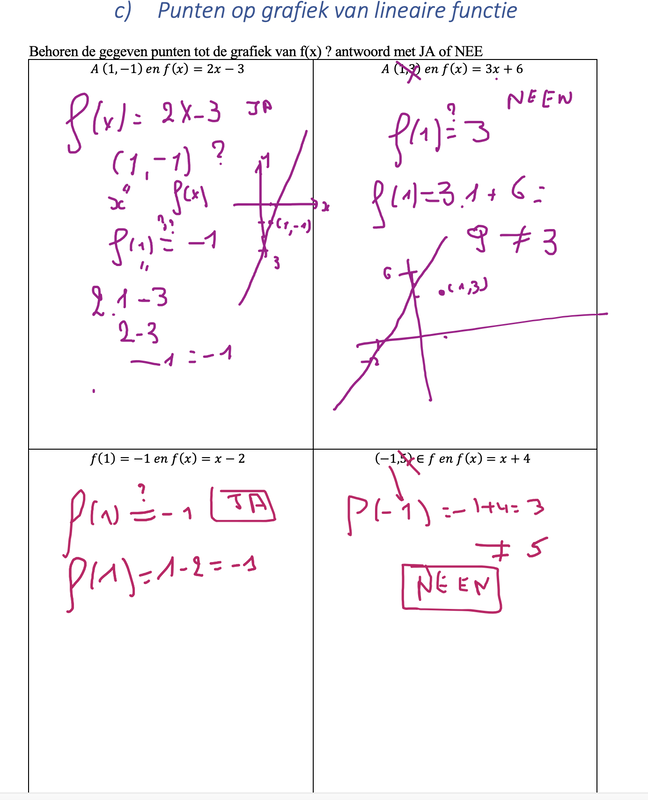 c) Punten op grafiek van lineaire functie
Behoren de gegeven punten tot de grafiek van f(x) ? antwoord met JA of NEE
A (1, −1) en f(x) = 2x − 3
f(x) = 2x-3 JA
(1,-1) ?
x f(x)
f(1) = -1
2.1-3
2-3
-1 = -1
y
x
(1,-1)
3
A (1,3) en f(x) = 3x + 6
NEEN
?
f(1) = 3
f(1)=3.1+6=
9 ≠ 3
6
.(1,3)
-2
f(1) = −1 en f(x) = x − 2
?
f(1) = -1 JA
f(1)=1-2=-1
(−1,5) ∈ f en f(x) = x + 4
f(-1)=-1+4=3
≠ 5
NEEN